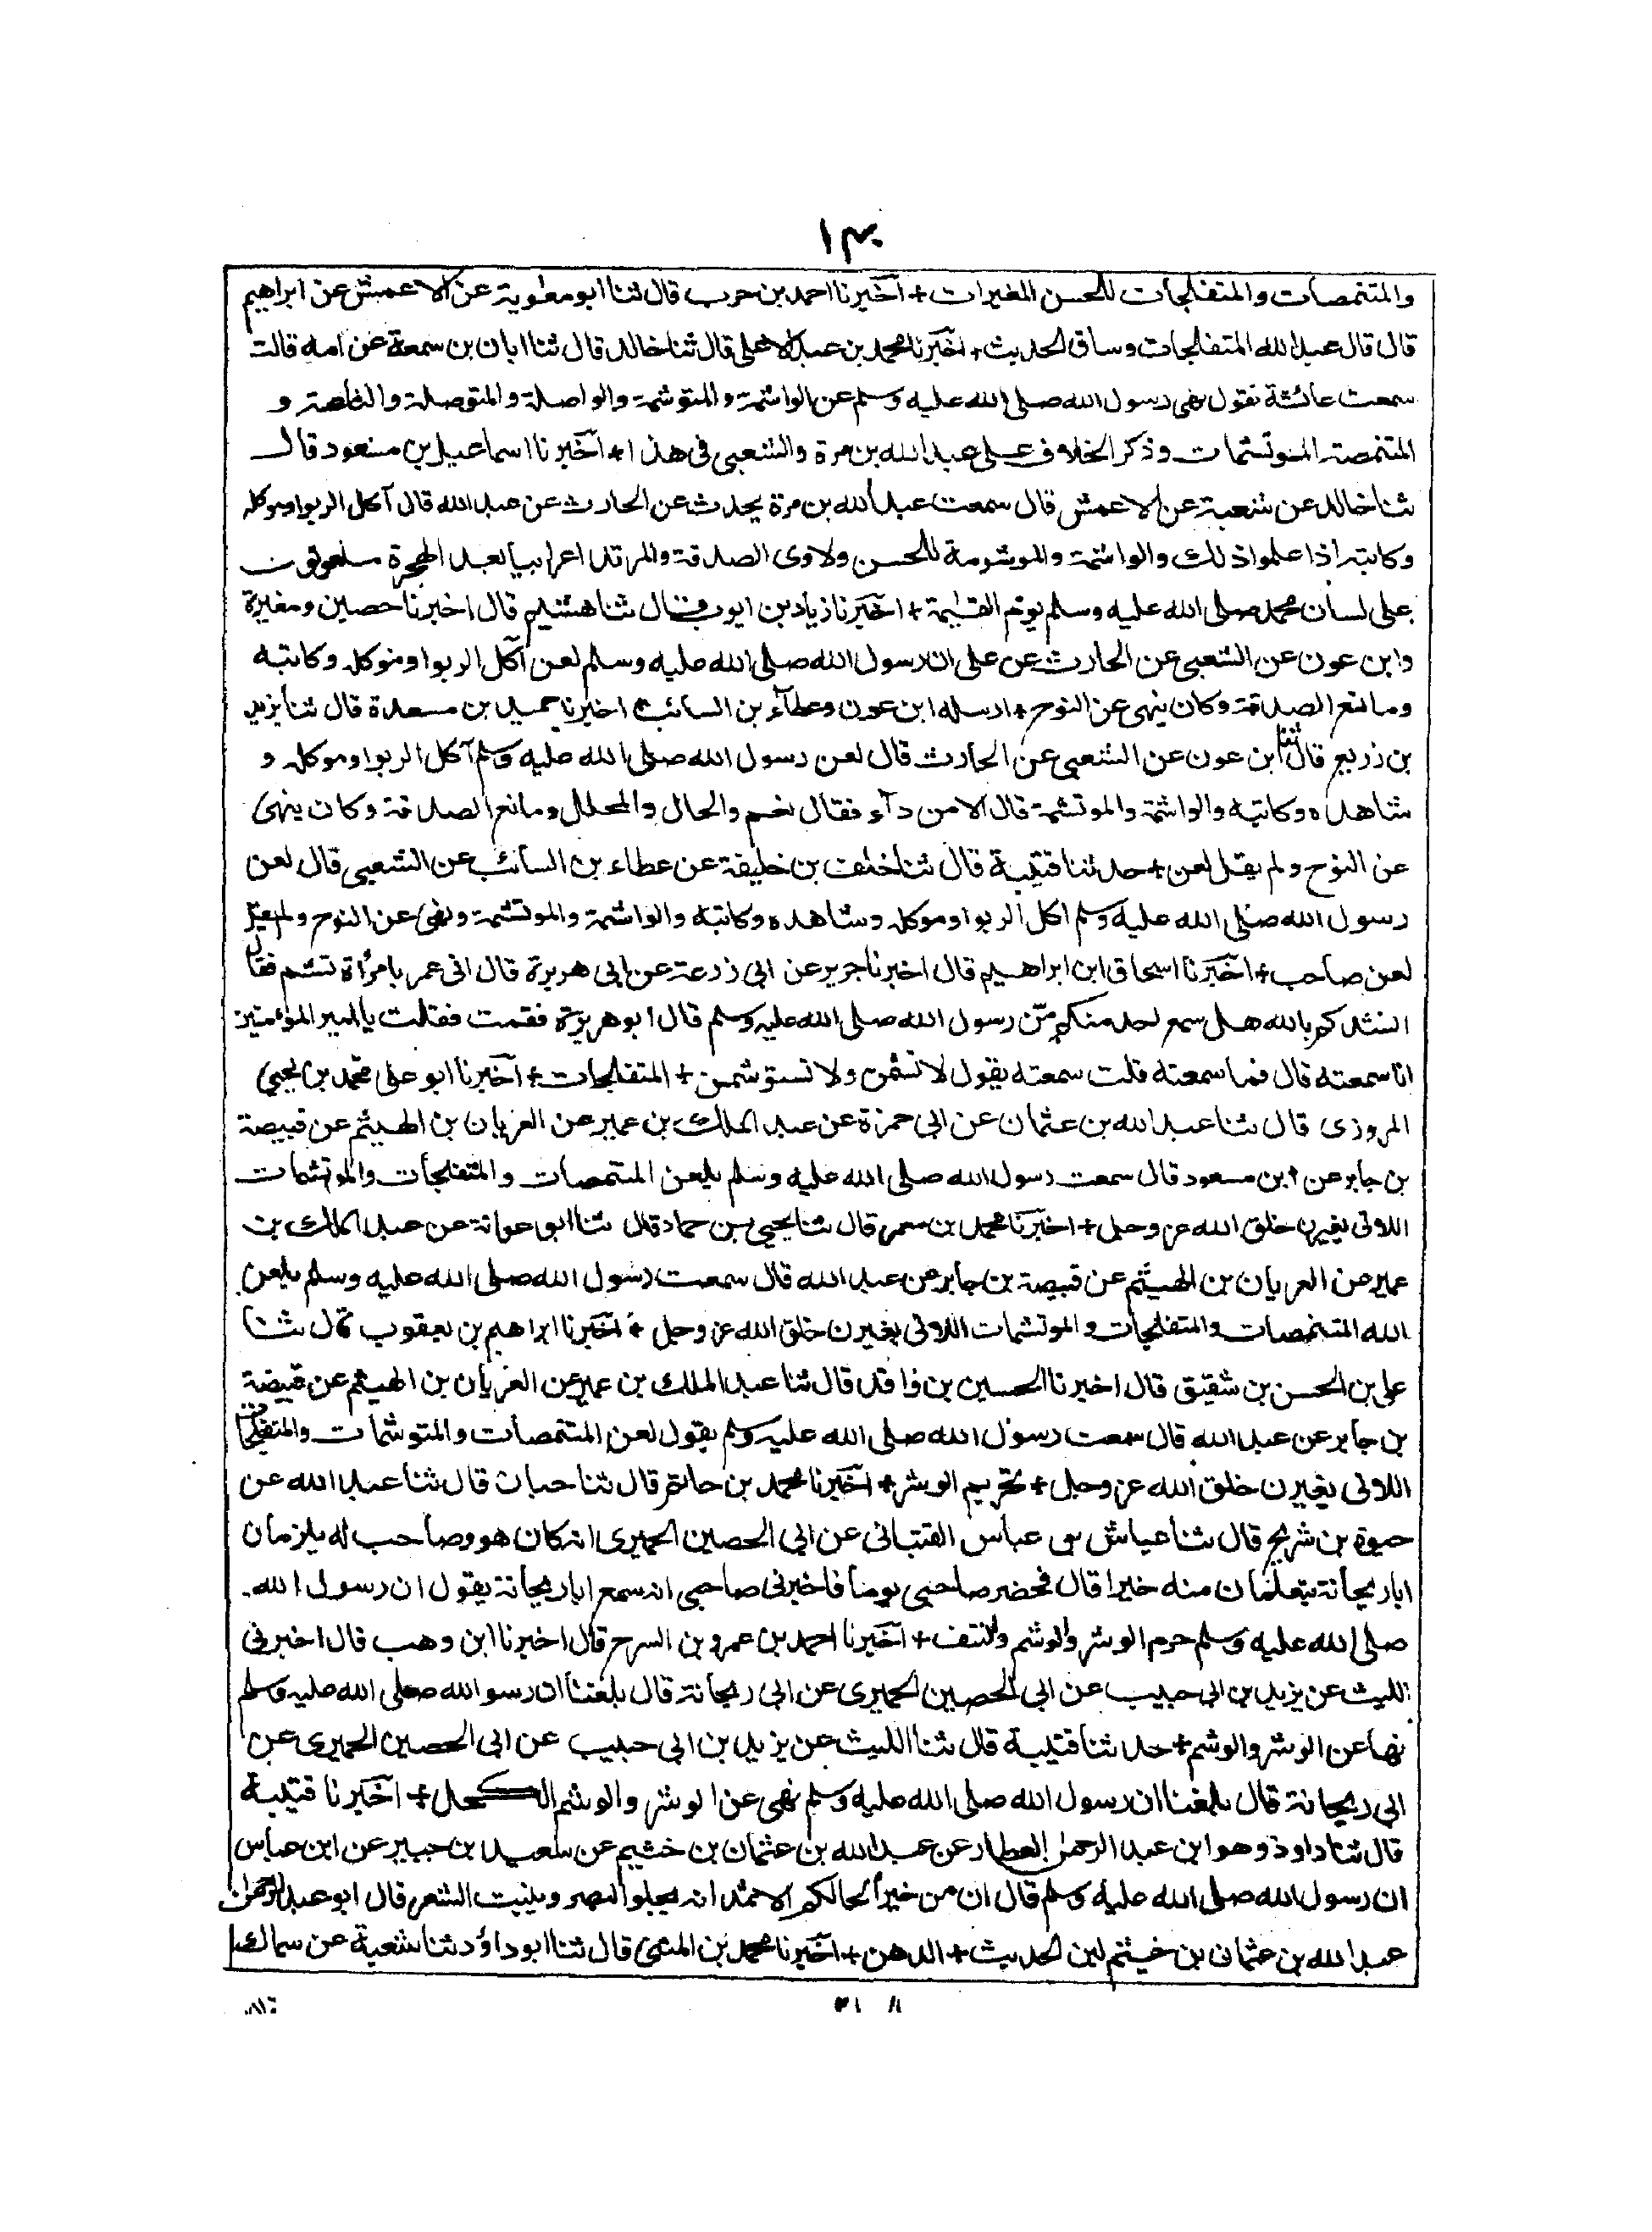 ١٣٠
والمتنمصات والمتفلجات للحسن المغيرات + اخبرنا احمد بن حرب قال ثنا ابو معٰوية عن الاعمش عن ابراهيم
قال قال عبد الله المتفلجات وساق الحديث + اخبرنا محمد بن عبد الاعلى قال ثنا خالد قال ثنا ابان بن سمعة عن امه قالت
سمعت عائشة تقول نهى رسول الله صلى الله عليه وسلم عن الواشمة والمتوشمة والواصلة والمتوصلة والنامصة و
المتنمصة الموتشمات وذكر الخلاف على عبد الله بن مرة والشعبى فى هذا + اخبرنا اسماعيل بن مسعود قال
ثنا خالد عن شعبة عن الاعمش قال سمعت عبد الله بن مرة يحدث عن الحارث عن عبد الله قال آكل الربوا وموكله
وكاتبه اذا علموا ذلك والواشمة والموشومة للحسن ولاوى الصدقة والمرتد اعرابيا بعد الهجرة ملعونون
على لسان محمد صلى الله عليه وسلم يوم القيٰمة + اخبرنا زياد بن ايوب قال ثنا هشيم قال اخبرنا حصين ومغيرة
وابن عون عن الشعبى عن الحارث عن على ان رسول الله صلى الله عليه وسلم لعن آكل الربوا وموكله وكاتبه
ومانع الصدقة وكان ينهى عن النوح + ارسله ابن عون وعطآء بن السائب + اخبرنا حميد بن مسعدة قال ثنا يزيد
بن زريع قال ثنا ابن عون عن الشعبى عن الحارث قال لعن رسول الله صلى الله عليه وسلم آكل الربوا وموكله و
شاهده وكاتبه والواشمة والموتشمة قال الا من دآء فقال نعم والحال والمحلل ومانع الصدقة وكان ينهى
عن النوح ولم يقل لعن + حدثنا قتيبة قال ثنا خلف بن خليفة عن عطاء بن السائب عن الشعبى قال لعن
رسول الله صلى الله عليه وسلم اكل الربوا وموكله وشاهده وكاتبه والواشمة والموتشمة ونهى عن النوح ولم يقل
لعن صاحب + اخبرنا اسحاق ابن ابراهيم قال اخبرنا جرير عن ابى زرعة عن ابى هريرة قال اتى عمر بامرأة تشم فقال
انشدكم بالله هل سمع احد منكم من رسول الله صلى الله عليه وسلم قال ابو هريرة فقمت فقلت يا امير المؤمنين
انا سمعته قال فما سمعته قلت سمعته يقول لا تشمن ولا تستوشمن + المتفلجات + اخبرنا ابو على محمد بن يحيى
المروزى قال ثنا عبد الله بن عثمان عن ابى حمزة عن عبد الملك بن عمير عن العريان بن الهيثم عن قبيصة
بن جابر عن ابن مسعود قال سمعت رسول الله صلى الله عليه وسلم يلعن المتنمصات والمتفلجات والموتشمات
اللاتى يغيرن خلق الله عز وجل + اخبرنا محمد بن معمر قال ثنا يحيى بن حماد قال ثنا ابو عوانة عن عبد الملك بن
عمير عن العريان بن الهيثم عن قبيصة بن جابر عن عبد الله قال سمعت رسول الله صلى الله عليه وسلم يلعن
الله المتنمصات والمتفلجات والموتشمات اللاتى يغيرن خلق الله عز وجل + اخبرنا ابراهيم بن يعقوب قال ثنا
على بن الحسن بن شقيق قال اخبرنا الحسين بن واقد قال ثنا عبد الملك بن عمير عن العريان بن الهيثم عن قبيصة
بن جابر عن عبد الله قال سمعت رسول الله صلى الله عليه وسلم يقول لعن المتنمصات والمتوشمات والمتفلجات
اللاتى يغيرن خلق الله عز وجل + تحريم الوشر + اخبرنا محمد بن حاتم قال ثنا حبان قال ثنا عبد الله عن
حيوة بن شريح قال ثنا عياش بن عباس القتبانى عن ابى الحصين الحميرى انه كان هو وصاحب له يلزمان
ابا ريحانة يتعلمان منه خيرا قال فحضر صاحبى يوما فاخبرنى صاحبى انه سمع ابا ريحانة يقول ان رسول الله
صلى الله عليه وسلم حرم الوشر والوشم والنتف + اخبرنا احمد بن عمرو بن السرح قال اخبرنا ابن وهب قال اخبرنى
الليث عن يزيد بن ابى حبيب عن ابى الحصين الحميرى عن ابى ريحانة قال بلغنا ان رسو الله صلى الله عليه وسلم
نها عن الوشر والوشم + حدثنا قتيبة قال ثنا الليث عن يزيد بن ابى حبيب عن ابى الحصين الحميرى عن
ابى ريحانة قال بلغنا ان رسول الله صلى الله عليه وسلم نهى عن الوشر والوشم الكحل + اخبرنا قتيبة
قال ثنا داود وهو ابن عبد الرحمٰن العطار عن عبد الله بن عثمان بن خثيم عن سعيد بن جبير عن ابن عباس
ان رسول الله صلى الله عليه وسلم قال ان من خير اكحالكم الاثمد انه يجلوا البصر وينبت الشعر قال ابو عبد الرحمٰن
عبد الله بن عثمان بن خيثم لين الحديث + الدهن + اخبرنا محمد بن المثنى قال ثنا ابو داؤد ثنا شعبة عن سماك